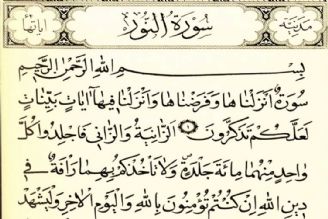 مدنية سورة النور آياتها
بسم الله الرحمن الرحيم
سورة أنزلناها وفرضناها وأنزلنا فيها آيات بينات
لعلكم تذكرون الزانية والزاني فاجلدوا كل
واحد منهما مائة جلدة ولا تأخذكم بهما رأفة في
دين الله إن كنتم تؤمنون بالله واليوم الآخر وليشهد